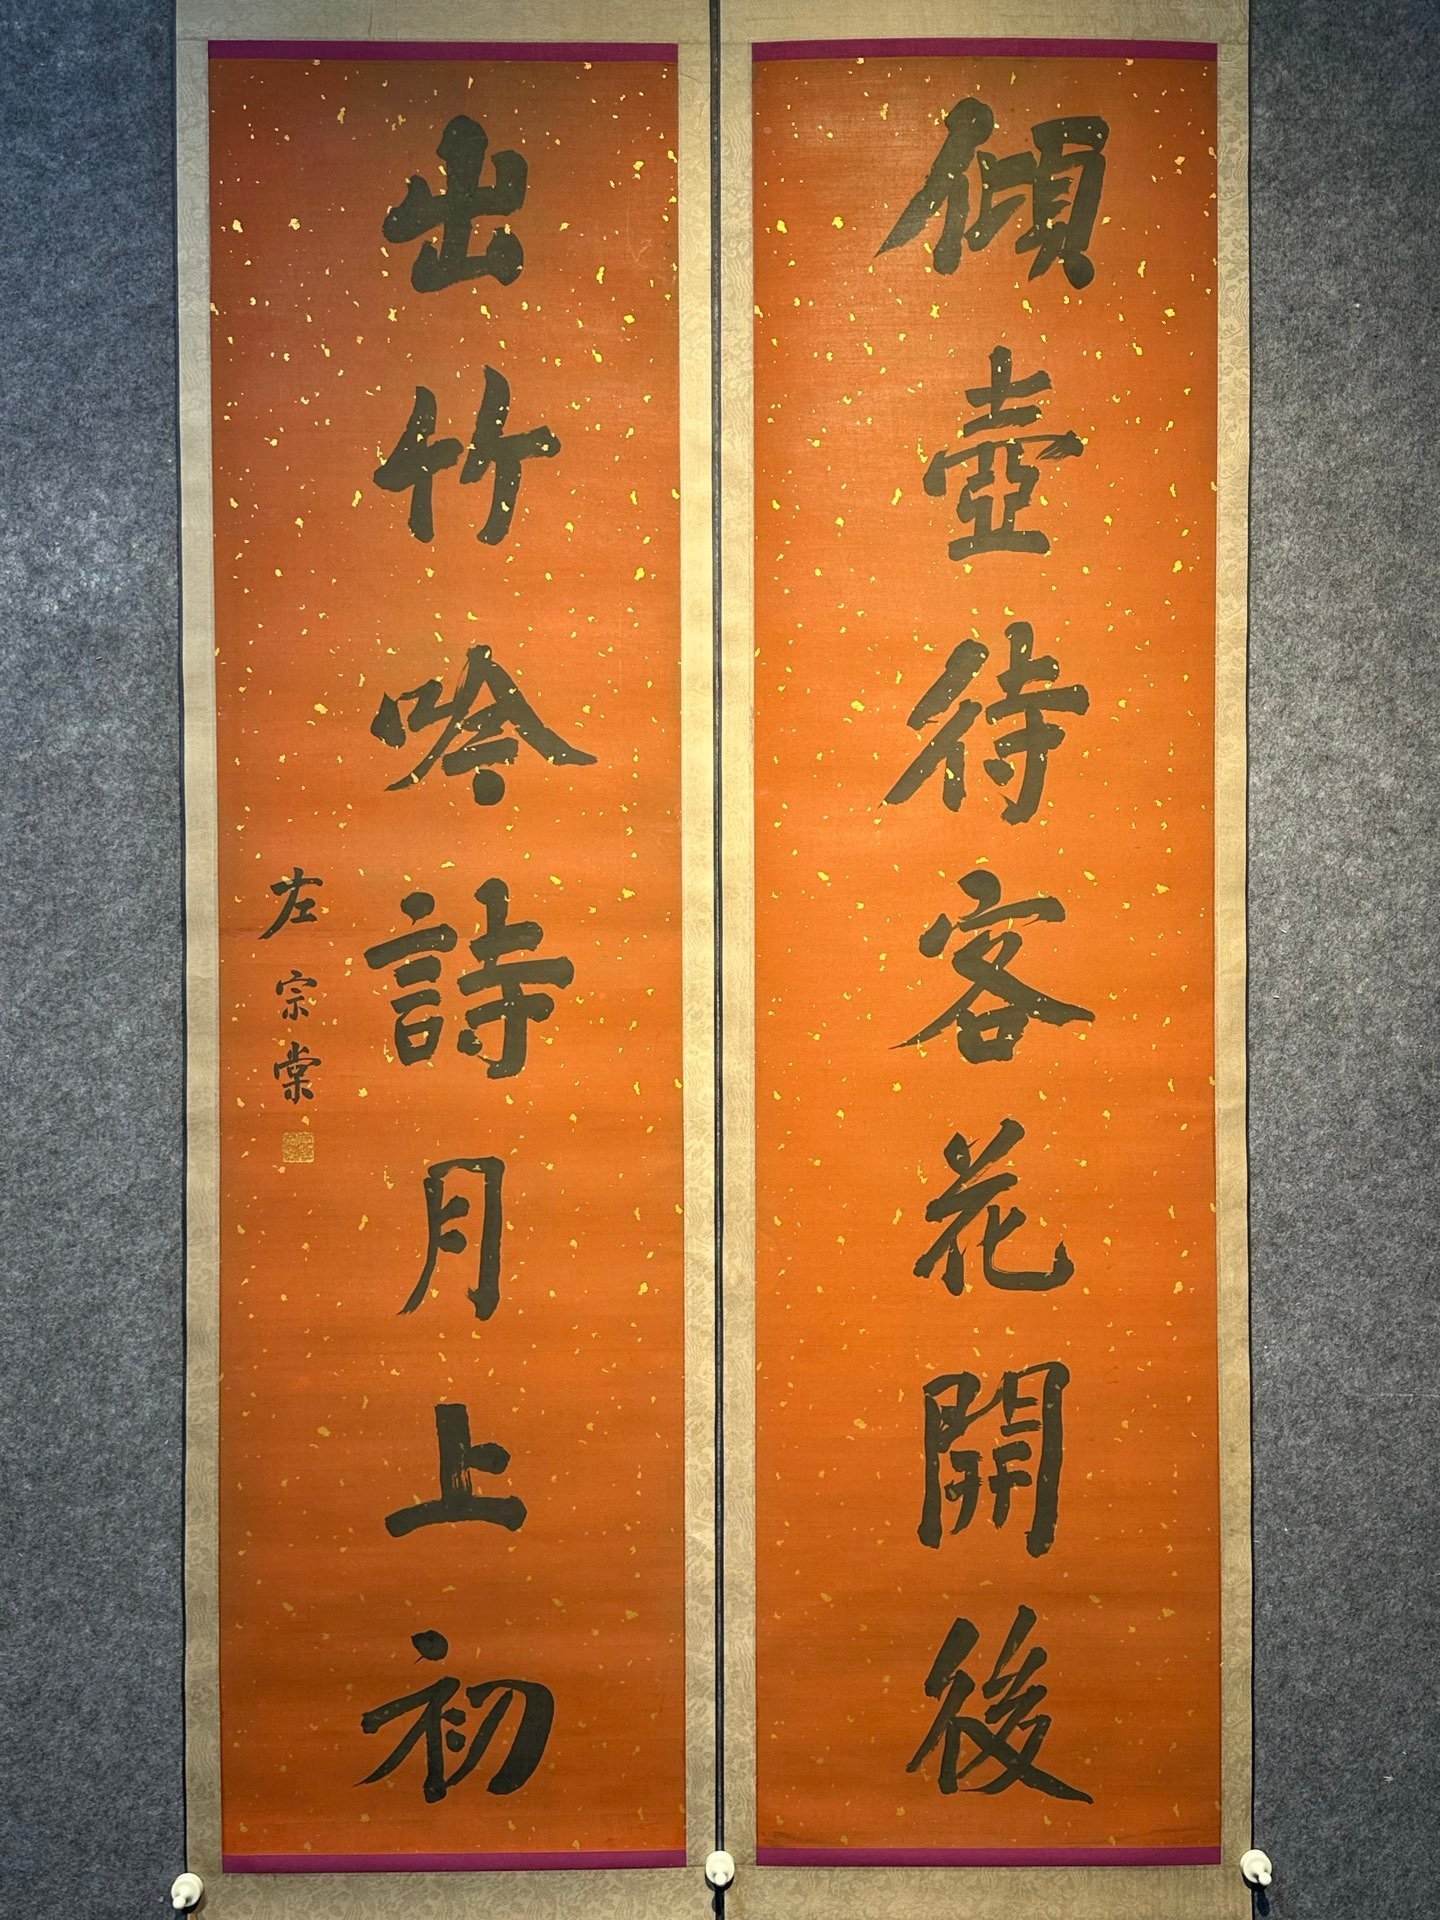 傾壺待客花開後
出竹吟詩月上初
左宗棠